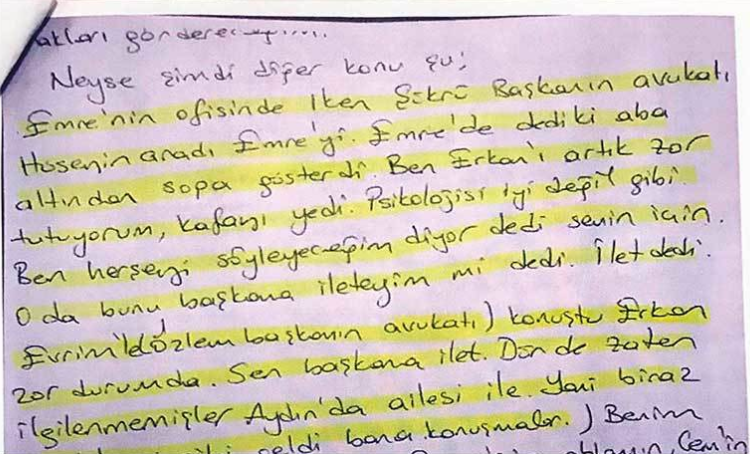 göndereceğim.
Neyse şimdi diğer konu şu;
Emre'nin ofisinde iken Şükrü Başkanın avukatı
Hüseyin aradı Emre'yi. Emre'de dediki aba
altından sopa gösterdi. Ben Erkan'ı artık zor
tutuyorum, kafayı yedi. Psikolojisi iyi değil gibi.
Ben herseyi söyleyeceğim diyor dedi senin için.
O da bunu başkana ileteyim mi dedi. İlet dedi.
Evrim'le Özlem başkanın avukatı) konuştu Erkan
zor durumda. Sen başkana ilet. Dün de zaten
ilgilenmemişler Aydın'da ailesi ile. Yani biraz
geldi bana konuşmalar.) Benim
ablamın, Cem'in